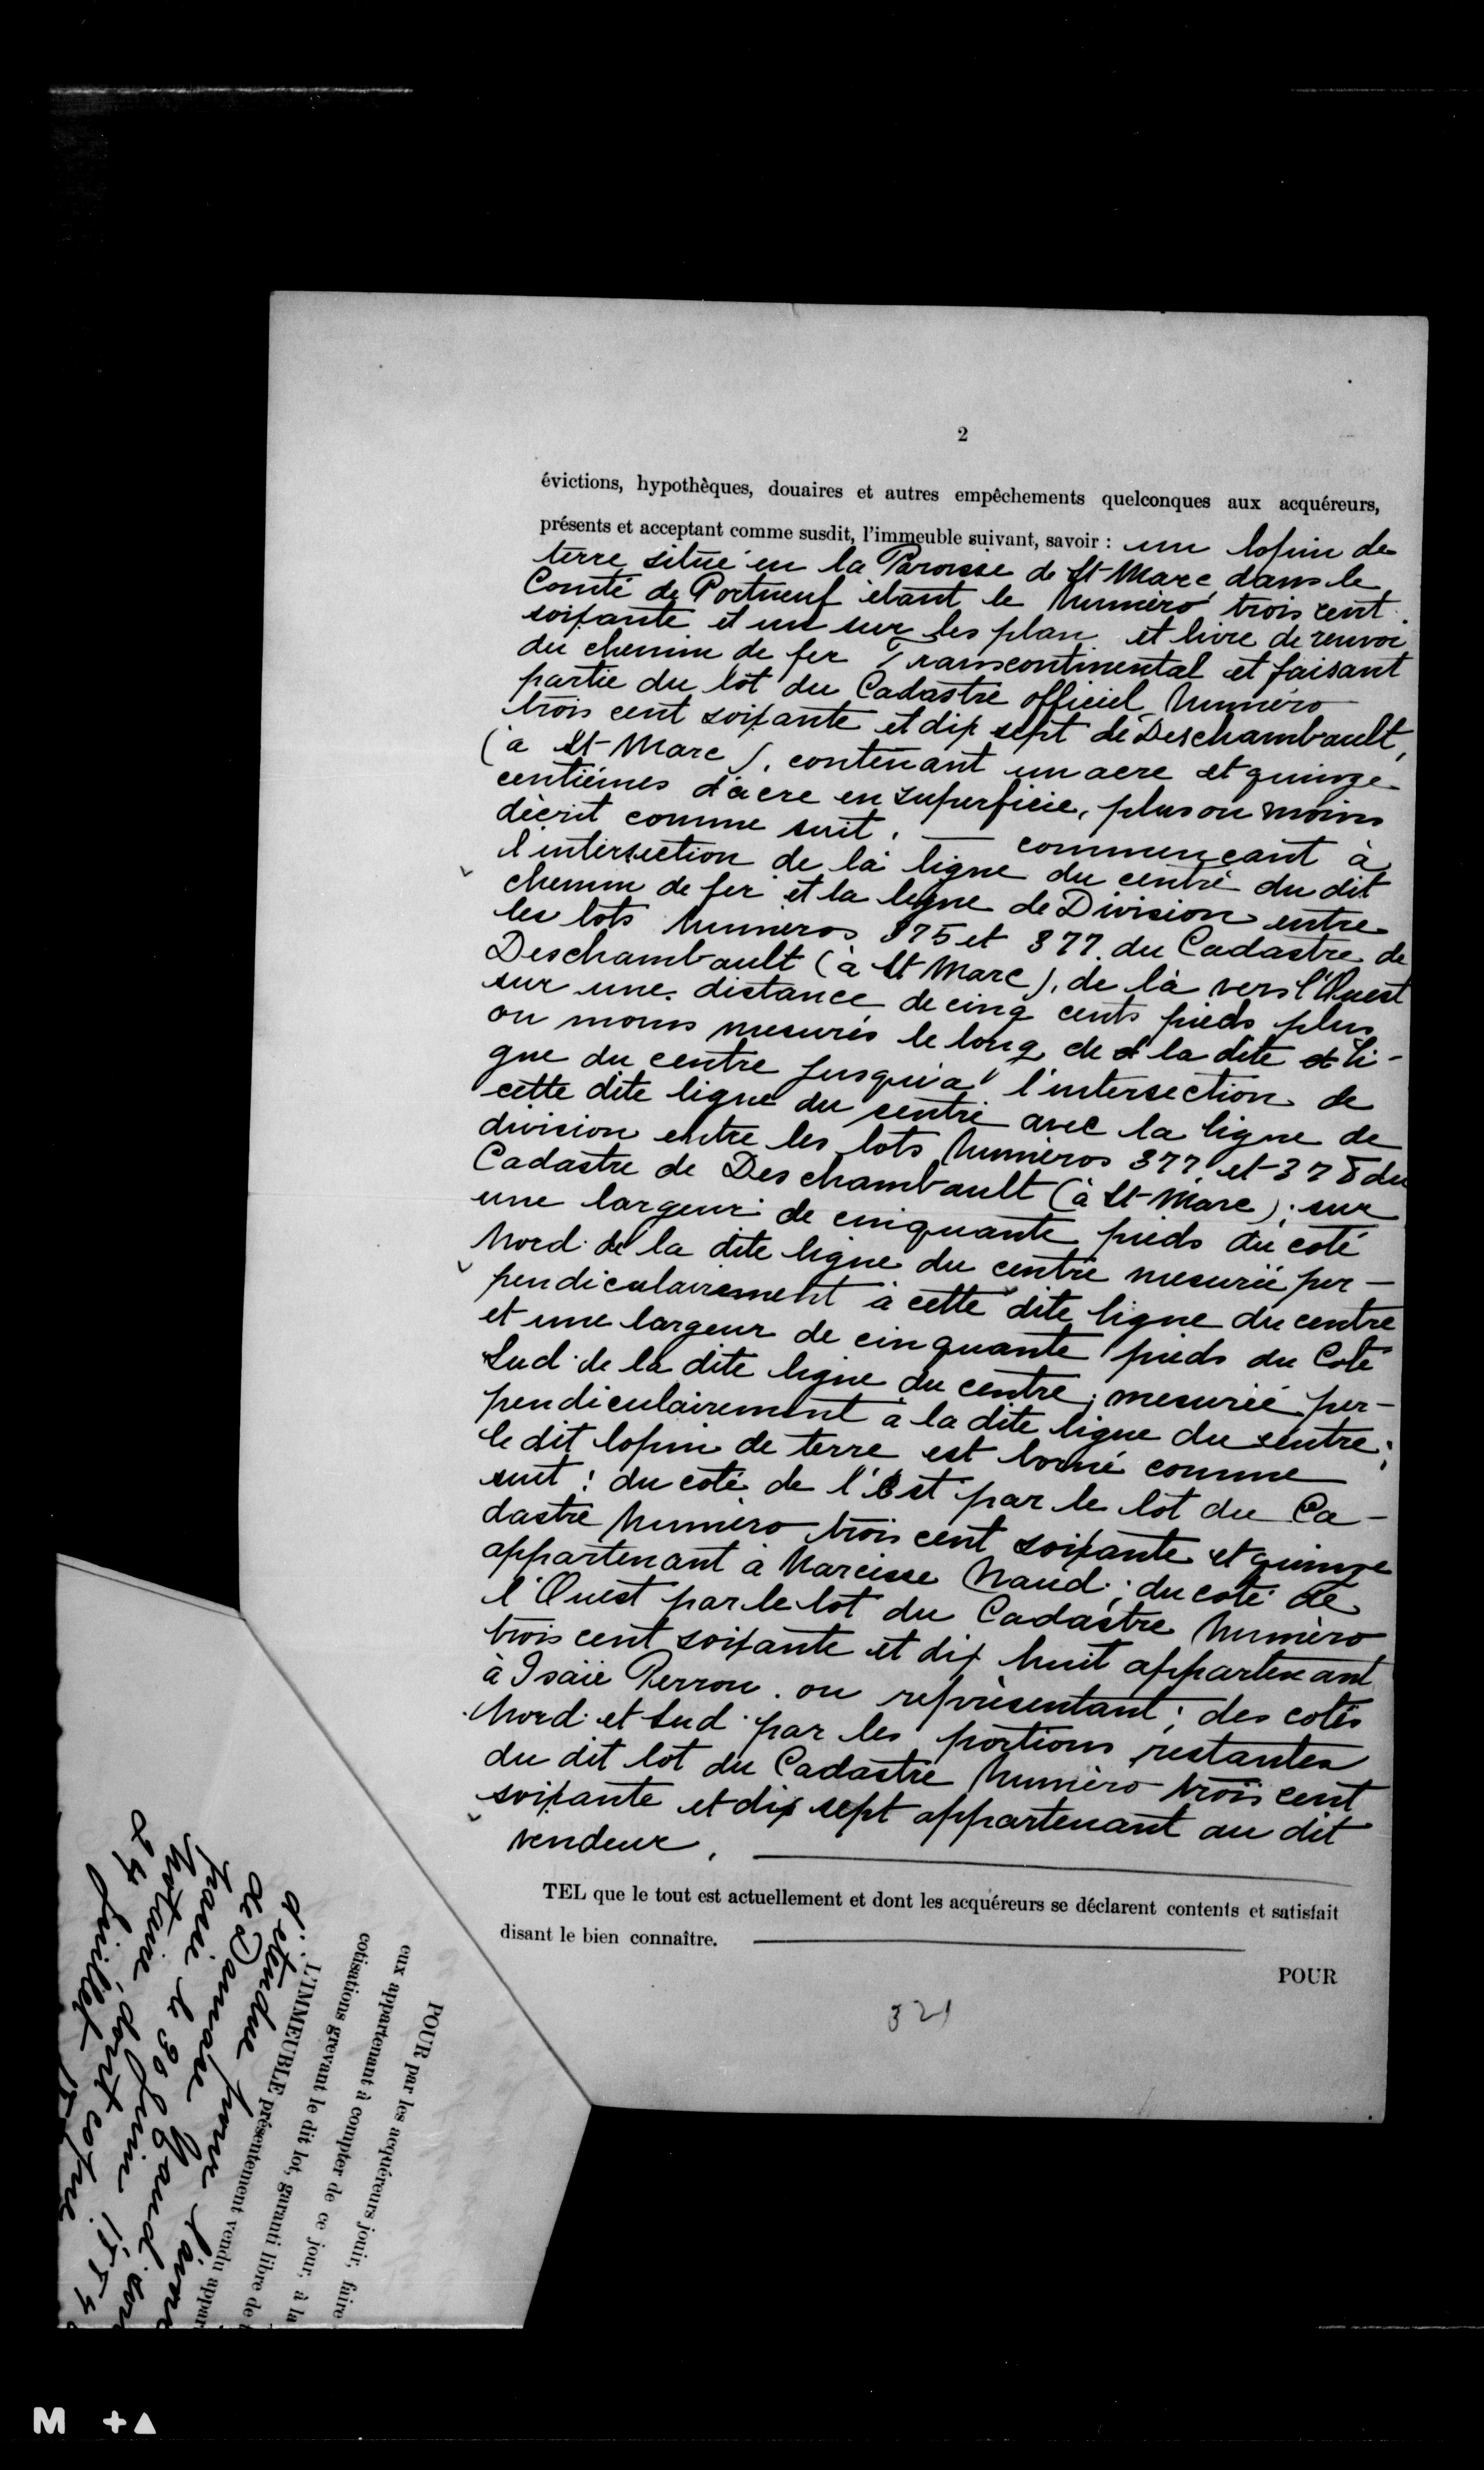 2
évictions, hypothèques, douaires et autres empêchements quelconques aux acquéreurs,
présents et acceptant comme susdit, l'immeuble suivant, savoir : un lopin de
terre situé en la Paroisse de St Marc, dans le
Comté de Portneuf étant le numéro trois cent
soixante et un sur les plan et livre de renvoi
du chemin de fer Transcontinental et faisant
partie du lot du Cadastre officiel numéro
trois cent soixante et dix sept de Deschambault,
(à St-Marc), contenant un acre et quinze
centièmes d'acre en superficie, plus ou moins
décrit comme suit : — commençant à
l'intersection de la ligne du centre du dit
chemin de fer et la ligne de Division entre
les lots numéros 375 et 377 du Cadastre de
Deschambault (à St Marc), de là vers l'Ouest
sur une distance de cinq cents pieds plus
ou moins mesurés le long de la dite li-
gne du centre jusqu'à l'intersection de
cette dite ligne du centre avec la ligne de
division entre les lots numéros 377 et 378 du
Cadastre de Deschambault (à St-Marc); sur
une largeur de cinquante pieds du coté
Nord de la dite ligne du centre mesurée per-
pendiculairement à cette dite ligne du centre
et une largeur de cinquante pieds du coté
Sud de la dite ligne du centre, mesurée per-
pendiculairement à la dite ligne du centre;
le dit lopin de terre est borné comme
suit : du coté de l'Est par le lot du Ca-
dastre numéro trois cent soixante et quinze
appartenant à Narcisse Naud; du coté de
l'Ouest par le lot du Cadastre numéro
trois cent soixante et dix huit appartenant
à Isaïe Perron ou représentant; des cotés
Nord et Sud par les portions restantes
du dit lot du Cadastre numéro trois cent
soixante et dix sept appartenant au dit
vendeur.
TEL que le tout est actuellement et dont les acquéreurs se déclarent contents et satisfait
disant le bien connaître.
POUR
321
POUR par les acquéreurs jouir, faire
eux appartenant à compter de ce jour, à la
cotisations grevant le dit lot, garanti libre de
L'IMMEUBLE présentement vendu appar
d'étendue pour l'avoir
de Damase Naud
passé le 30 juin 1884
notaire, dont copie
24 juillet